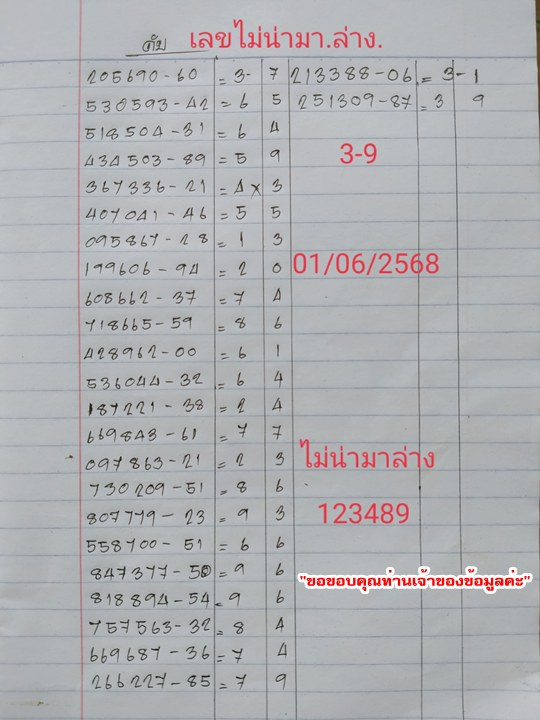 ดับ เลขไม่น่ามา.ล่าง.
205690-60 = 3- 7 213388-06 = 3-1
530593-42 = 6 5 251309-87 = 3 9
518504-31 = 6 4
434503-89 = 5 9 3-9
367336-21 = 4 x 3
407041-46 = 5 5
095867-28 = 1 3
199606-94 = 2 0 01/06/2568
608662-37 = 7 4
718665-59 = 8 6
428962-00 = 6 1
536044-32 = 6 4
187221-38 = 2 4
669843-61 = 7 7
097863-21 = 2 3 ไม่น่ามาล่าง
730209-51 = 8 6
807779-23 = 9 3 123489
558700-51 = 6 6
847377-50 = 9 6 "ขอขอบคุณท่านเจ้าของข้อมูลค่ะ"
818894-54 = 9 6
757563-32 = 8 4
669687-36 = 7 4
266227-85 = 7 9